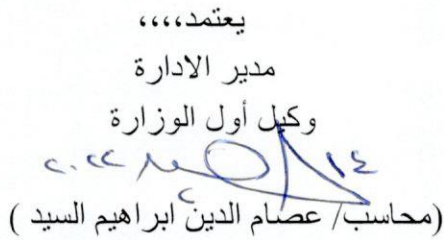 يعتمد،،،،
مدير الادارة
وكيل أول الوزارة
(محاسب/ عصام الدين ابراهيم السيد )